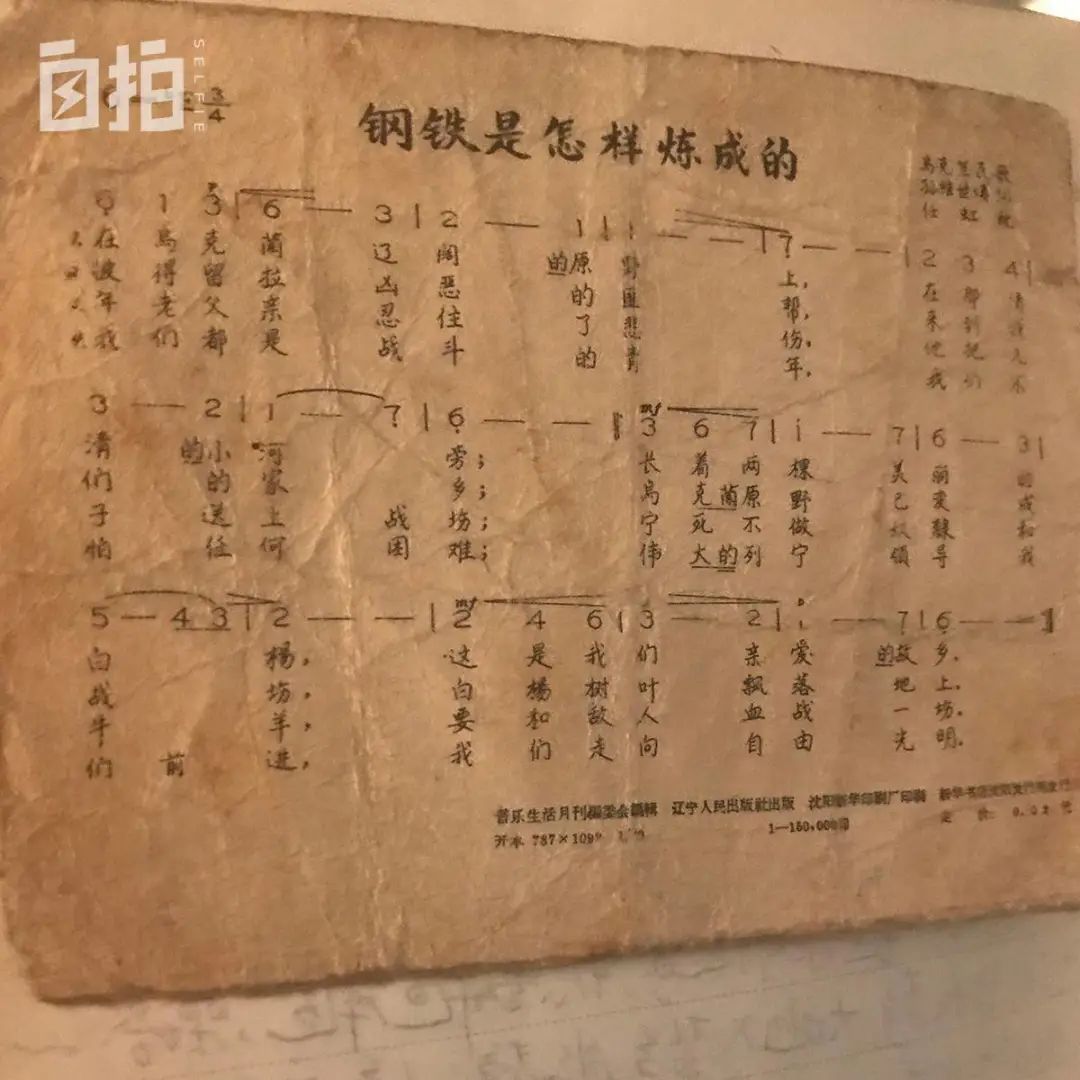 自拍
SELFIE
3/4
钢铁是怎样炼成的
乌克兰民歌
3 | 6 — 3 | 2 — 1 | 1 — — | 7 — — | 2 3 4 |
在乌克兰辽阔的原野上,在那清
得留拉凶恶的匪帮,
年老父亲忍住了悲伤,
我们都是战斗的青年,我们不
3 — 2 | 1 — 7 | 6 — — 3 6 7 | i — 7 | 6 — 3 |
清的小河旁;长着两棵美丽的
们的家乡;乌克兰原野已爱
子送上战场;宁死不做奴隶和
怕任何困难;伟大的列宁领导我
5 — 4 3 | 2 — — | 2 4 6 | 3 — 2 | 1 — 7 | 6 — —
白杨,这是我们亲爱的故乡.
战场,白杨树叶飘落地上.
牛羊,要和敌人血战一场.
们前进,我们走向自由光明.
音乐生活月刊编委会编辑 辽宁人民出版社出版 沈阳新华印刷厂印刷
开本 787×109
1—150,000
定价: 0.02